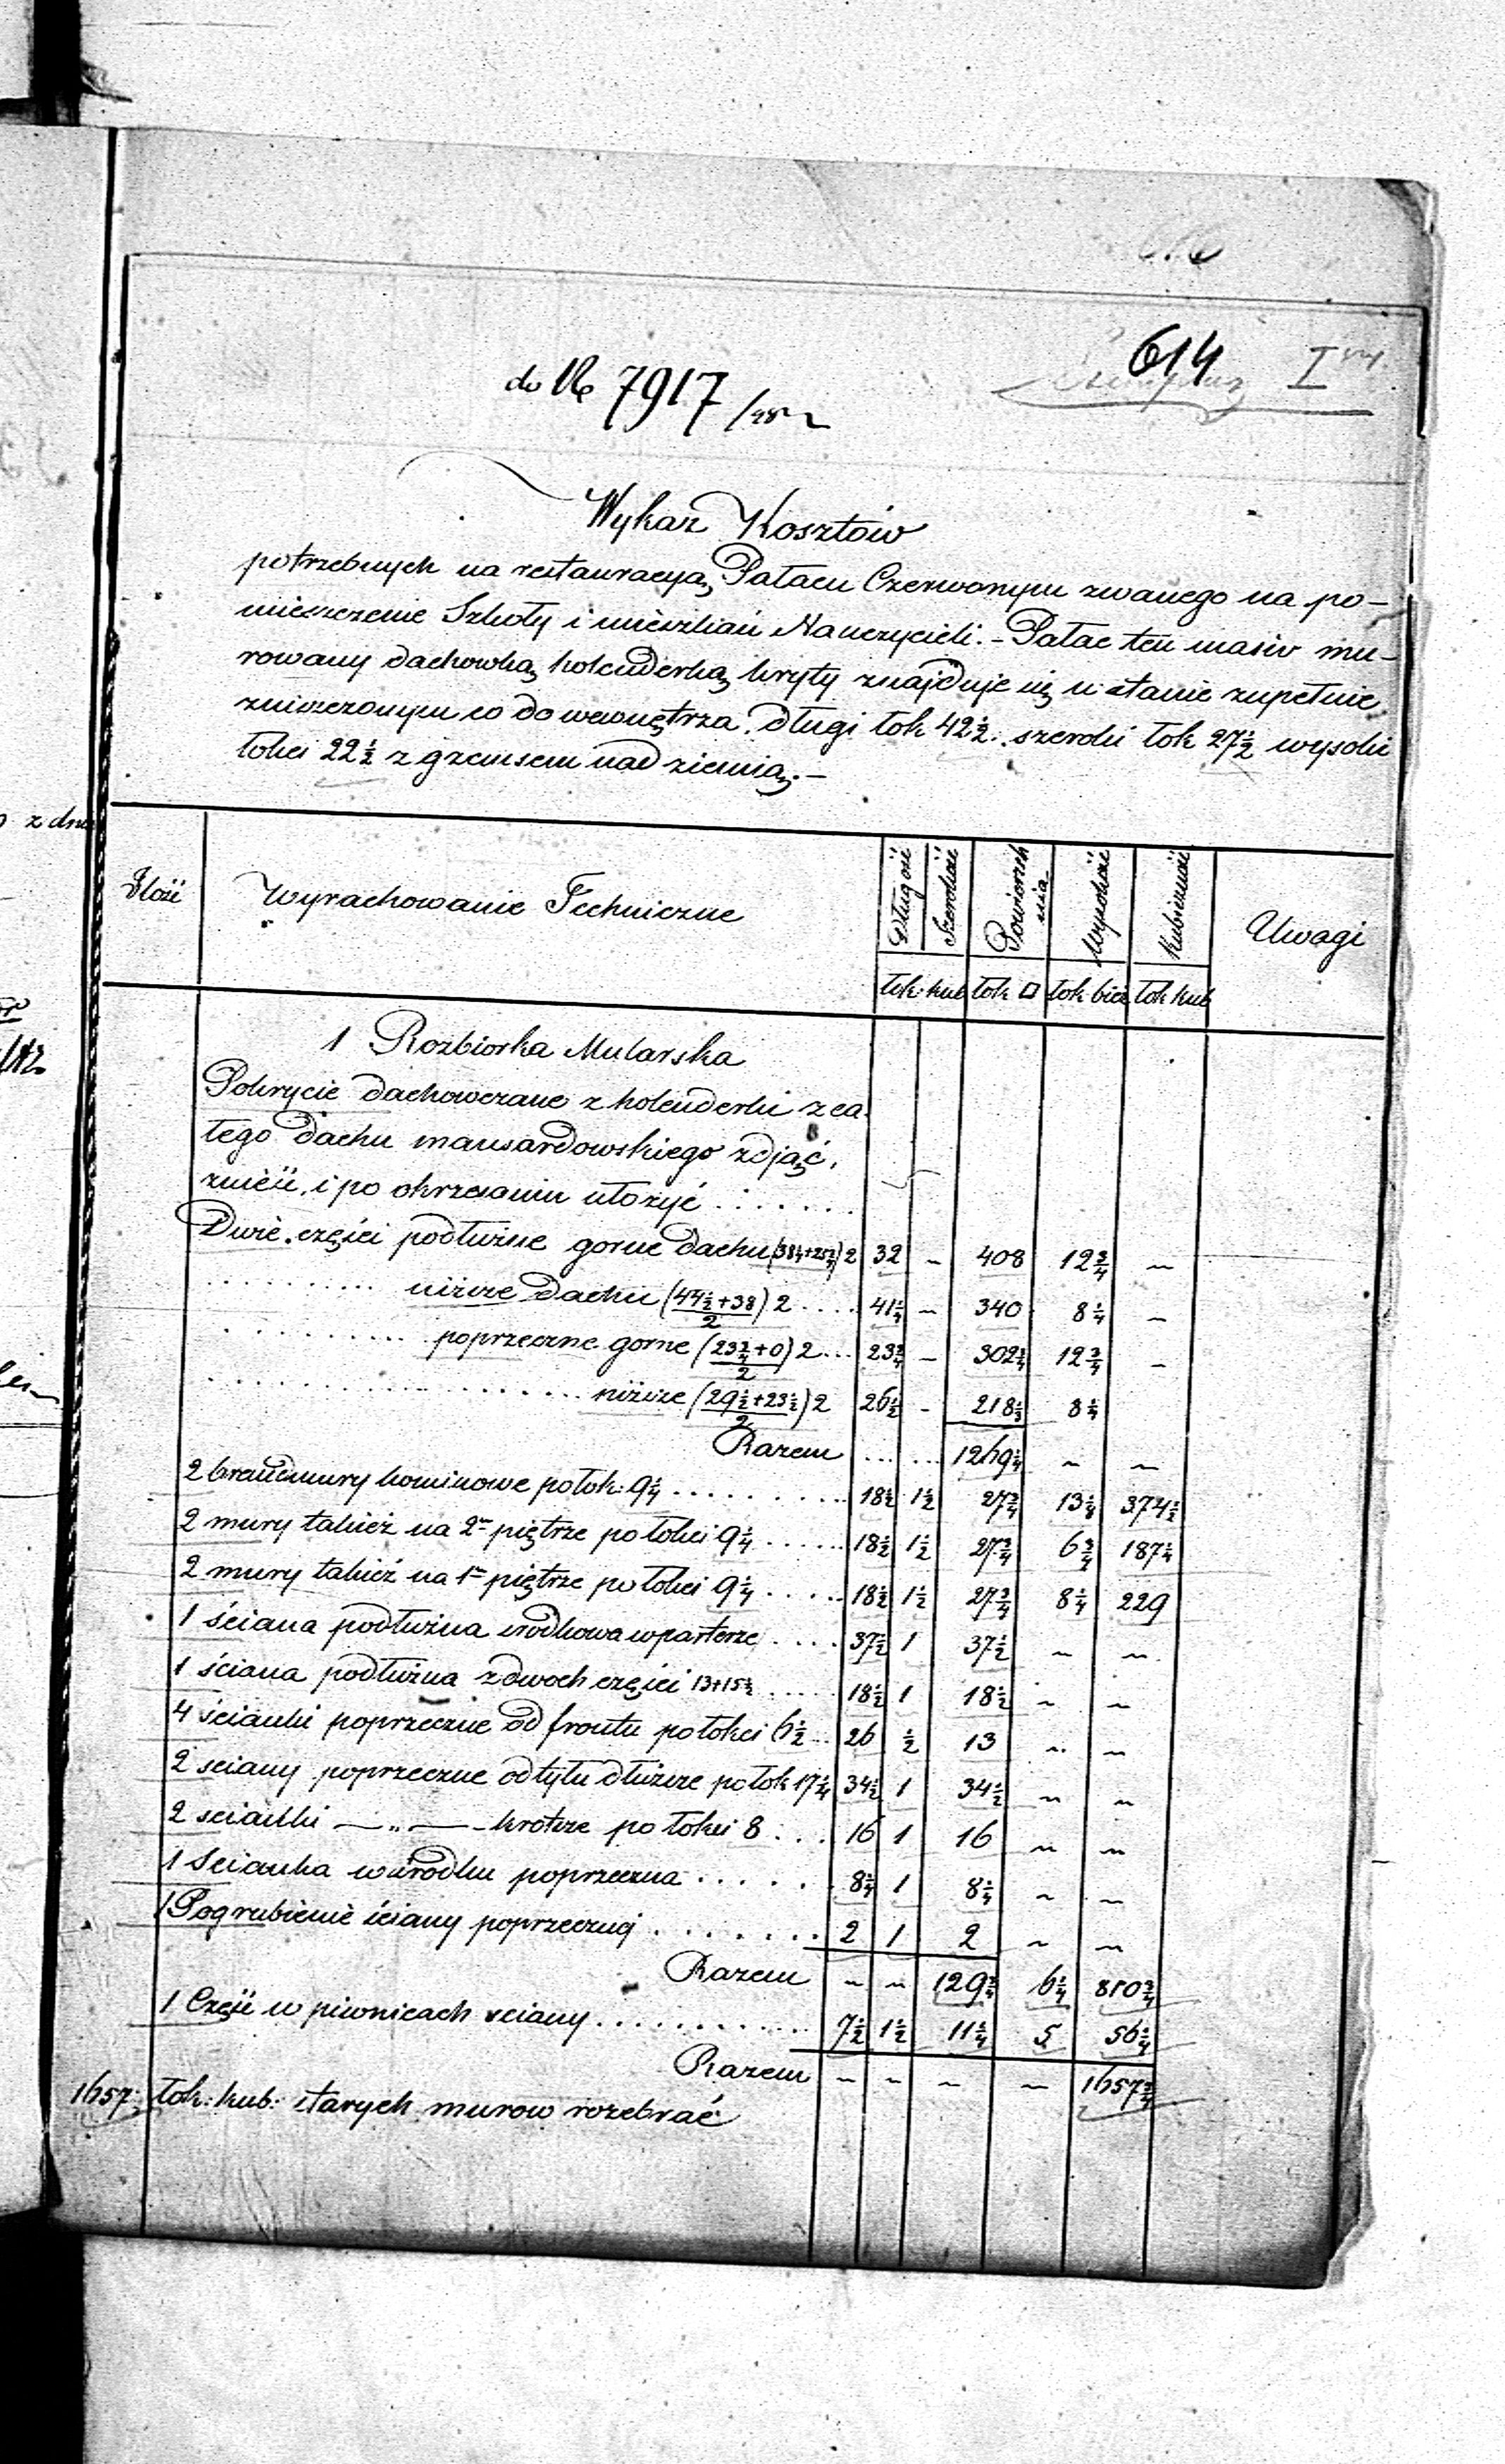 614 I
do № 7917
Wykaz Kosztów
potrzebnych na restauracyą Pałacu Czerwonym zwanego na po-
mieszczenie Szkoły i mieszkań Nauczycieli. - Pałac ten masiv mu-
rowany dachowką holenderką kryty znajduje się w stanie zupełnie
zniszczonym co do wewnętrza. długi łok 42½. szeroki łok 27½ wysoki
łokci 22½ z gzemsem nad ziemią. -
Ilość Wyrachowanie Techniczne Długość Szerokość Powierzchnia Wysokość Kubiczność Uwagi
łok: kub łok □ łok bież łok kub
1 Rozbiorka Mularska
Pokrycie dachowczane z holenderki z ca
łego dachu mansardowskiego zdjąć,
znieść, i po okrzesaniu ułożyć . . . . . . .
Dwie części podłużne gorne dachu 2 32 - 408 12¾ -
niższe dachu (44½+38)2 / 2 .... 41¼ - 340 8¼ -
poprzeczne gorne (23¾+0)2 / 2 ... 23¾ - 302¾ 12¾ -
niższe (29½+23½)2 / 2 26½ - 218½ 8¼
Razem ... ... 1269¼ - -
2 brandmury kominowe po łok: 9¼ . . . . . . . . . 18½ 1½ 27¾ 13½ 374½
2 mury takież na 2m piętrze po łokci 9¼ . . . . . 18½ 1½ 27¾ 6¾ 187¼
2 mury takież na 1m piętrze po łokci 9¼ . . . . . 18½ 1½ 27¾ 8¼ 229
1 ściana podłużna srodkowa w parterze . . . . 37½ 1 37½ - -
1 ściana podłużna z dwoch części 13+15½ ..... 18½ 1 18½ - -
4 ścianki poprzeczne od frontu po łokci 6½ .. 26 ½ 13 - -
2 sciany poprzeczne od tyłu dłuższe po łok 17¼ 34½ 1 34½ - -
2 scianki — „ — - krotsze po łokci 8 . . . 16 1 16 - -
1 Scianka w środku poprzeczna . . . . . . 8¼ 1 8¼ - -
1 Pogrubienie ściany poprzecznej . . . . . . . 2 1 2 - -
Razem - - 129¾ 6¼ 810¾
1 Część w piwnicach sciany . . . . . . . . . . . 7½ 1½ 11¼ 5 56¼
Razem - - - - 1657¾
1657: łok: kub: starych murow rozebrać